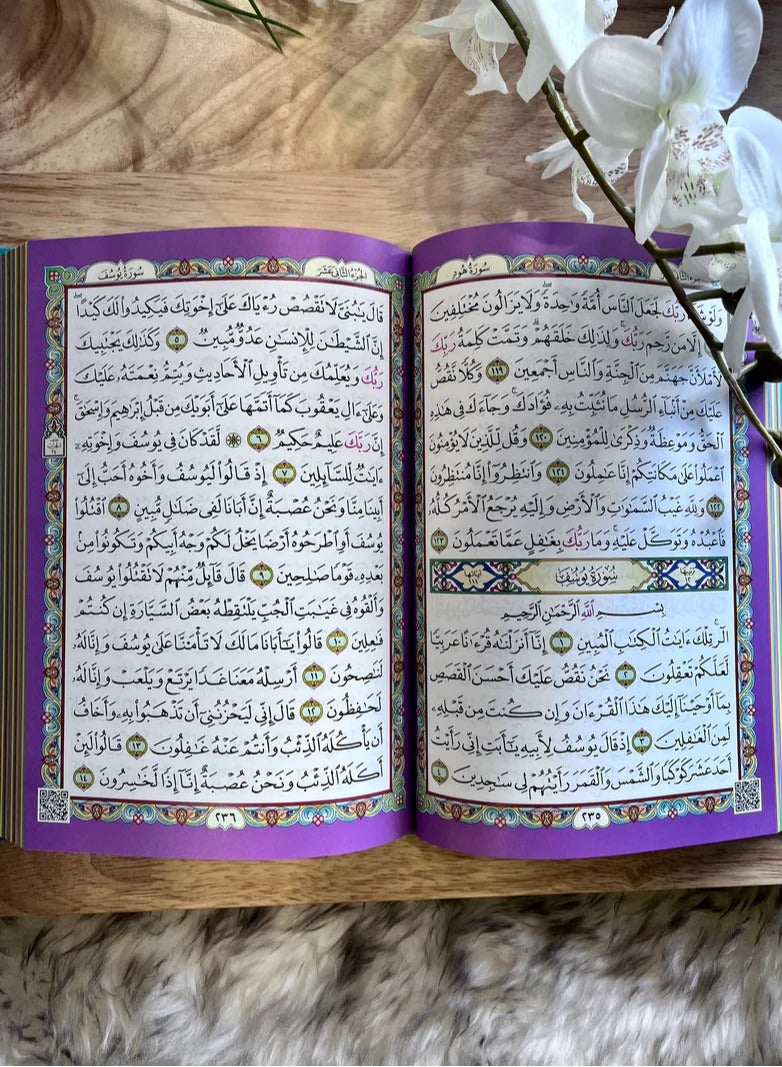 سُورَةُ هُودٍ
وَلَوْ شَآءَ رَبُّكَ لَجَعَلَ ٱلنَّاسَ أُمَّةً وَٰحِدَةً ۖ وَلَا يَزَالُونَ مُخْتَلِفِينَ
إِلَّا مَن رَّحِمَ رَبُّكَ ۚ وَلِذَٰلِكَ خَلَقَهُمْ ۗ وَتَمَّتْ كَلِمَةُ رَبِّكَ
لَأَمْلَأَنَّ جَهَنَّمَ مِنَ ٱلْجِنَّةِ وَٱلنَّاسِ أَجْمَعِينَ ١١٩ وَكُلًّا نَّقُصُّ
عَلَيْكَ مِنْ أَنۢبَآءِ ٱلرُّسُلِ مَا نُثَبِّتُ بِهِۦ فُؤَادَكَ ۚ وَجَآءَكَ فِى هَٰذِهِ
ٱلْحَقُّ وَمَوْعِظَةٌ وَذِكْرَىٰ لِلْمُؤْمِنِينَ ١٢٠ وَقُل لِّلَّذِينَ لَا يُؤْمِنُونَ
ٱعْمَلُوا۟ عَلَىٰ مَكَانَتِكُمْ إِنَّا عَٰمِلُونَ ١٢١ وَٱنتَظِرُوٓا۟ إِنَّا مُنتَظِرُونَ
١٢٢ وَلِلَّهِ غَيْبُ ٱلسَّمَٰوَٰتِ وَٱلْأَرْضِ وَإِلَيْهِ يُرْجَعُ ٱلْأَمْرُ كُلُّهُۥ
فَٱعْبُدْهُ وَتَوَكَّلْ عَلَيْهِ ۚ وَمَا رَبُّكَ بِغَٰفِلٍ عَمَّا تَعْمَلُونَ ١٢٣
سُورَةُ يُوسُفَ
بِسْمِ ٱللَّهِ ٱلرَّحْمَٰنِ ٱلرَّحِيمِ
الٓر ۚ تِلْكَ ءَايَٰتُ ٱلْكِتَٰبِ ٱلْمُبِينِ ١ إِنَّآ أَنزَلْنَٰهُ قُرْءَٰنًا عَرَبِيًّا
لَّعَلَّكُمْ تَعْقِلُونَ ٢ نَحْنُ نَقُصُّ عَلَيْكَ أَحْسَنَ ٱلْقَصَصِ
بِمَآ أَوْحَيْنَآ إِلَيْكَ هَٰذَا ٱلْقُرْءَانَ وَإِن كُنتَ مِن قَبْلِهِۦ
لَمِنَ ٱلْغَٰفِلِينَ ٣ إِذْ قَالَ يُوسُفُ لِأَبِيهِ يَٰٓأَبَتِ إِنِّى رَأَيْتُ
أَحَدَ عَشَرَ كَوْكَبًا وَٱلشَّمْسَ وَٱلْقَمَرَ رَأَيْتُهُمْ لِى سَٰجِدِينَ ٤
٢٣٥
الجُزْءُ الثَّانِي عَشَرَ
سُورَةُ يُوسُفَ
قَالَ يَٰبُنَىَّ لَا تَقْصُصْ رُءْيَاكَ عَلَىٰٓ إِخْوَتِكَ فَيَكِيدُوا۟ لَكَ كَيْدًا ۖ
إِنَّ ٱلشَّيْطَٰنَ لِلْإِنسَٰنِ عَدُوٌّ مُّبِينٌ ٥ وَكَذَٰلِكَ يَجْتَبِيكَ
رَبُّكَ وَيُعَلِّمُكَ مِن تَأْوِيلِ ٱلْأَحَادِيثِ وَيُتِمُّ نِعْمَتَهُۥ عَلَيْكَ
وَعَلَىٰٓ ءَالِ يَعْقُوبَ كَمَآ أَتَمَّهَا عَلَىٰٓ أَبَوَيْكَ مِن قَبْلُ إِبْرَٰهِيمَ وَإِسْحَٰقَ ۚ
إِنَّ رَبَّكَ عَلِيمٌ حَكِيمٌ ٦ ۞ لَّقَدْ كَانَ فِى يُوسُفَ وَإِخْوَتِهِۦٓ
ءَايَٰتٌ لِّلسَّآئِلِينَ ٧ إِذْ قَالُوا۟ لَيُوسُفُ وَأَخُوهُ أَحَبُّ إِلَىٰٓ
أَبِينَا مِنَّا وَنَحْنُ عُصْبَةٌ إِنَّ أَبَانَا لَفِى ضَلَٰلٍ مُّبِينٍ ٨ ٱقْتُلُوا۟
يُوسُفَ أَوِ ٱطْرَحُوهُ أَرْضًا يَخْلُ لَكُمْ وَجْهُ أَبِيكُمْ وَتَكُونُوا۟ مِنۢ
بَعْدِهِۦ قَوْمًا صَٰلِحِينَ ٩ قَالَ قَآئِلٌ مِّنْهُمْ لَا تَقْتُلُوا۟ يُوسُفَ
وَأَلْقُوهُ فِى غَيَٰبَتِ ٱلْجُبِّ يَلْتَقِطْهُ بَعْضُ ٱلسَّيَّارَةِ إِن كُنتُمْ
فَٰعِلِينَ ١٠ قَالُوا۟ يَٰٓأَبَانَا مَا لَكَ لَا تَأْمَ۫نَّا عَلَىٰ يُوسُفَ وَإِنَّا لَهُۥ
لَنَٰصِحُونَ ١١ أَرْسِلْهُ مَعَنَا غَدًا يَرْتَعْ وَيَلْعَبْ وَإِنَّا لَهُۥ
لَحَٰفِظُونَ ١٢ قَالَ إِنِّى لَيَحْزُنُنِىٓ أَن تَذْهَبُوا۟ بِهِۦ وَأَخَافُ
أَن يَأْكُلَهُ ٱلذِّئْبُ وَأَنتُمْ عَنْهُ غَٰفِلُونَ ١٣ قَالُوا۟ لَئِنْ
أَكَلَهُ ٱلذِّئْبُ وَنَحْنُ عُصْبَةٌ إِنَّآ إِذًا لَّخَٰسِرُونَ ١٤
٢٣٦